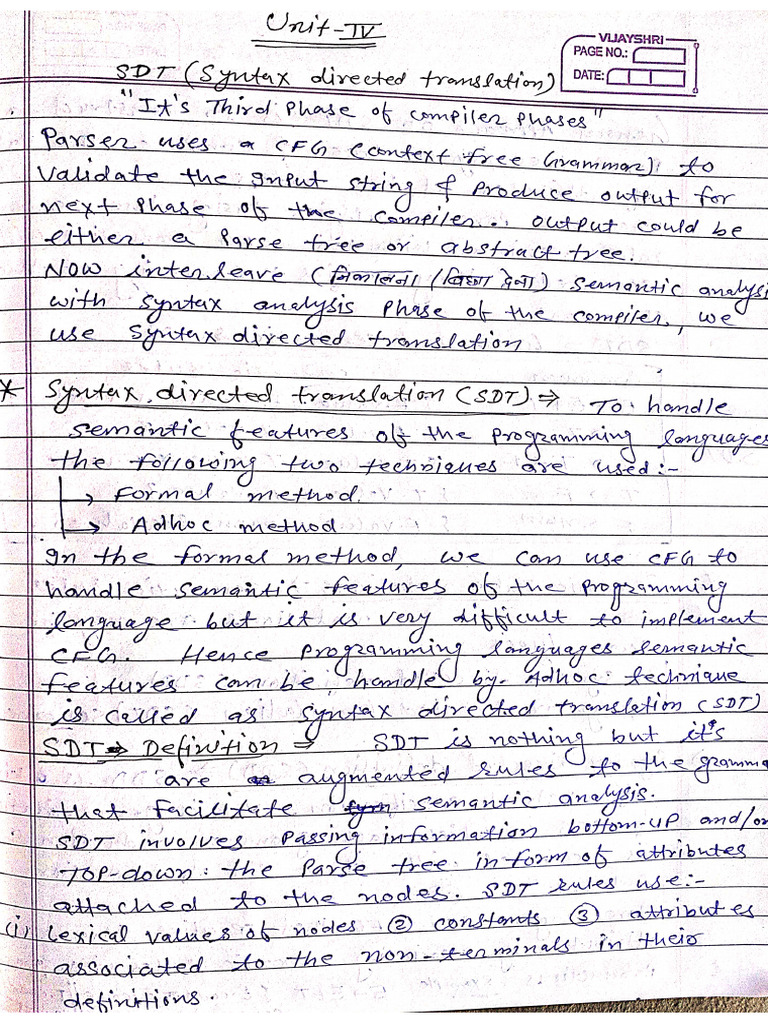 Unit-IV
VIJAYSHRI
PAGE NO.:
DATE:
SDT (Syntax directed translation)
"It's Third Phase of compiler phases"
Parser uses a CFG (context free Grammar) to
validate the input string & produce output for
next phase of the compiler. output could be
either a Parse tree or abstract tree.
Now interleave (निकालना / बिछा देना) semantic analysis
with syntax analysis phase of the compiler, we
use syntax directed translation
* Syntax directed translation (SDT) ⇒ To handle
semantic features of the programming languages
the following two techniques are used:-
→ Formal method.
→ Adhoc method
In the formal method, we can use CFG to
handle semantic features of the programming
language but it is very difficult to implement
CFG. Hence programming languages semantic
features can be handle by Adhoc technique
is called as syntax directed translation (SDT)
SDT ⇒ Definition ⇒ SDT is nothing but it's
are augmented rules to the gramma
that facilitate semantic analysis.
SDT involves passing information bottom-up and/or
TOP-down: the Parse tree in form of attributes
attached to the nodes. SDT rules use:-
(i) Lexical values of nodes ② constants ③ attributes
associated to the non-terminals in their
definitions.